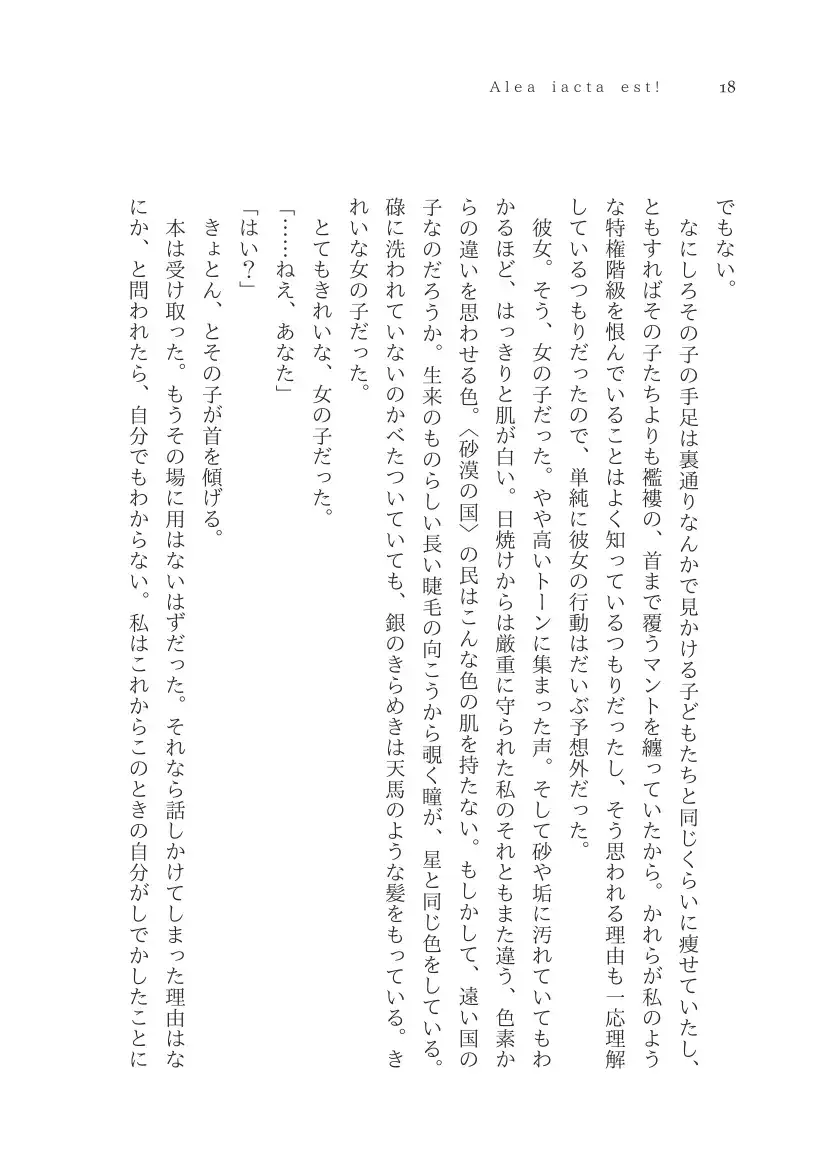 Alea iacta est!
18
でもない。
　なにしろその子の手足は裏通りなんかで見かける子どもたちと同じくらいに痩せていたし、
ともすればその子たちよりも襤褸の、首まで覆うマントを纏っていたから。かれらが私のよう
な特権階級を恨んでいることはよく知っているつもりだったし、そう思われる理由も一応理解
しているつもりだったので、単純に彼女の行動はだいぶ予想外だった。
　彼女。そう、女の子だった。やや高いトーンに集まった声。そして砂や垢に汚れていてもわ
かるほど、はっきりと肌が白い。日焼けからは厳重に守られた私のそれともまた違う、色素か
らの違いを思わせる色。〈砂漠の国〉の民はこんな色の肌を持たない。もしかして、遠い国の
子なのだろうか。生来のものらしい長い睫毛の向こうから覗く瞳が、星と同じ色をしている。
碌に洗われていないのかべたついていても、銀のきらめきは天馬のような髪をもっている。き
れいな女の子だった。
　とてもきれいな、女の子だった。
「……ねえ、あなた」
「はい？」
　きょとん、とその子が首を傾げる。
　本は受け取った。もうその場に用はないはずだった。それなら話しかけてしまった理由はな
にか、と問われたら、自分でもわからない。私はこれからこのときの自分がしでかしたことに